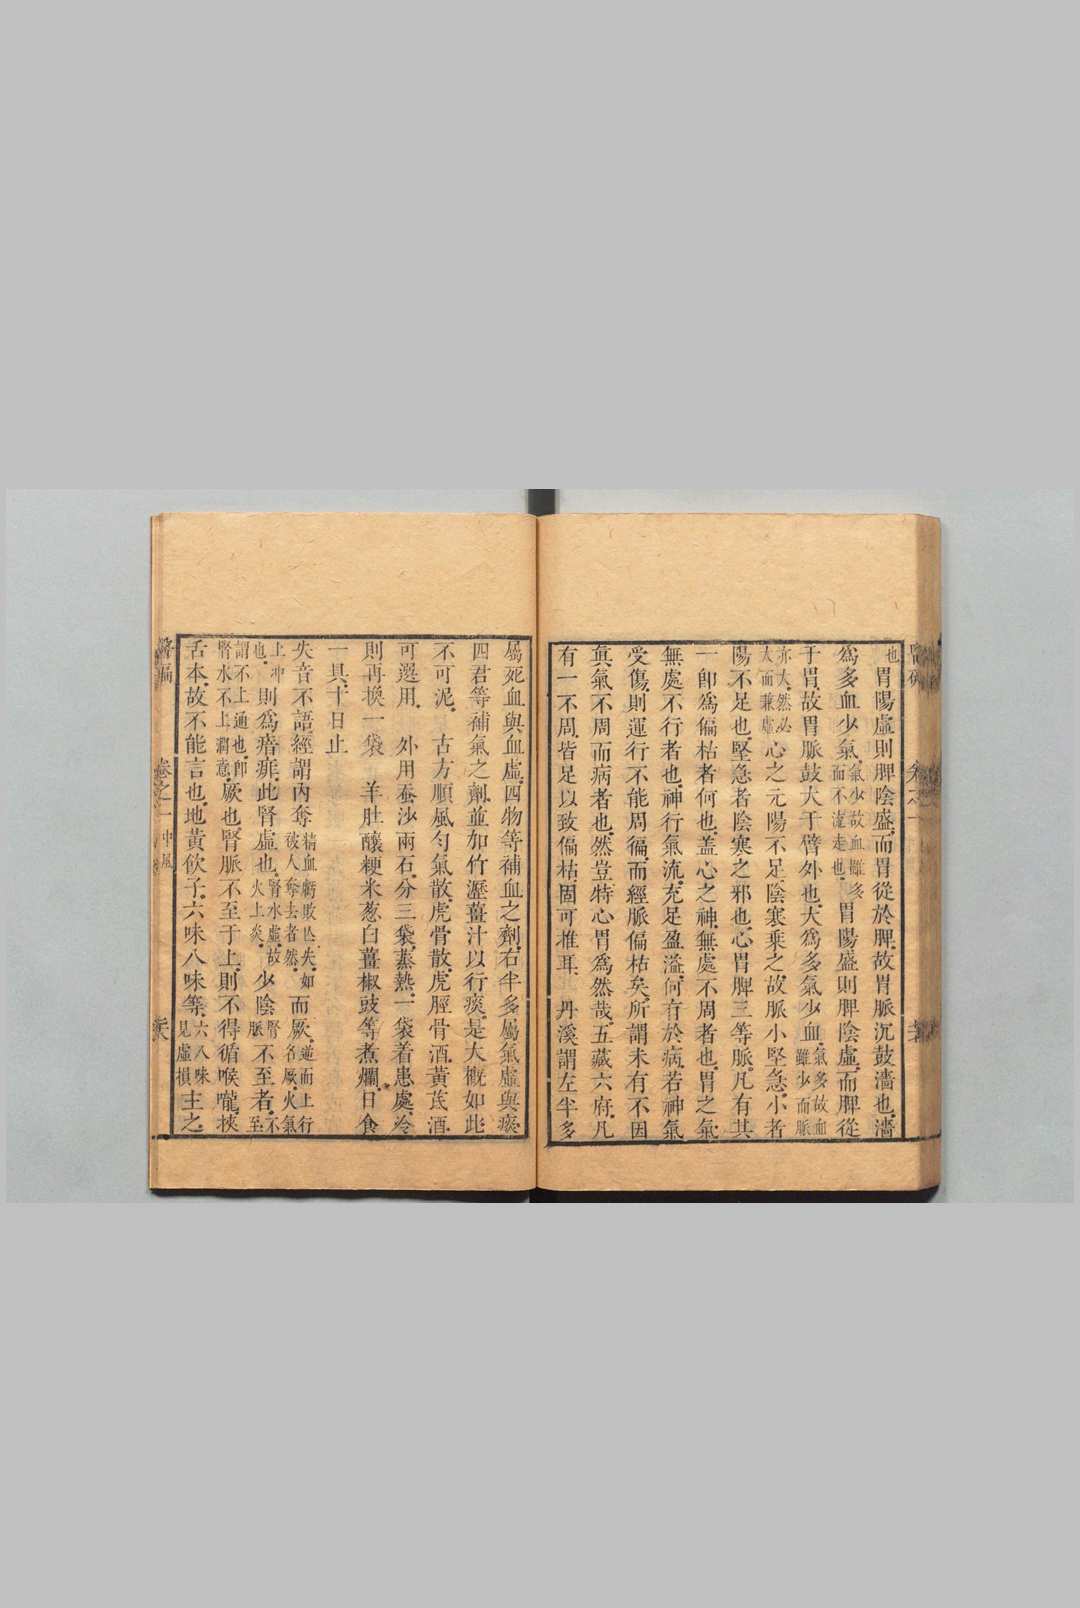 也胃陽虛則脾陰盛而胃從於脾故胃脈沉鼓濇也濇
爲多血少氣氣少故血雖多而不流走也胃陽盛則脾陰虛而脾從
于胃故胃脈鼓大于臂外也大爲多氣少血氣多故血雖少而脈
亦大然必大而兼虛心之元陽不足陰寒乘之故脈小堅急小者
陽不足也堅急者陰寒之邪也心胃脾三等脈凡有其
一卽爲偏枯者何也盖心之神無處不周者也胃之氣
無處不行者也神行氣流充足盈溢何有於病若神氣
受傷則運行不能周徧而經脈偏枯矣所謂未有不因
眞氣不周而病者也然豈特心胃爲然哉五藏六府凡
有一不周皆足以致偏枯固可推耳 丹溪謂左半多
屬死血與血虛四物等補血之劑右半多屬氣虛與痰
四君等補氣之劑並加竹瀝薑汁以行痰是大槪如此
不可泥 古方順風勻氣散虎骨散虎脛骨酒黃芪酒
可選用 外用蚕沙兩石分三袋蒸熱一袋着患處冷
則再換一袋 羊肚釀粳米葱白薑椒豉等煮爛日食
一具十日止
失音不語經謂內奪精血虧敗亾失如被人奪去者然而厥逆而上行名厥火氣
上冲也則爲瘖痱此腎虛也腎水虛故火上炎少陰腎脈不至者不至
謂不上通也卽腎水不上潤意厥也腎脈不至于上則不得循喉嚨挾
舌本故不能言也地黃飲子六味八味等六八味見虛損主之
卷之一 中風